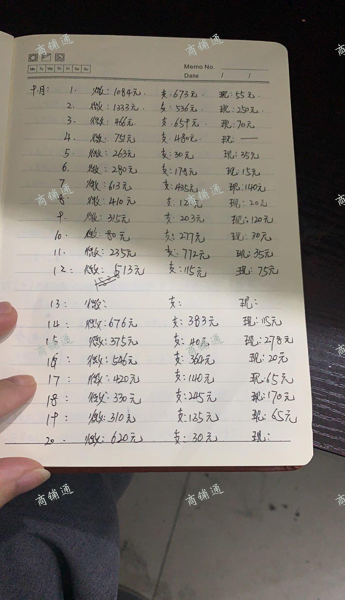 Memo No.
Mo Tu We Th Fr Sa Su
Date / /
1. 微:1084元 支:673元 现:55元
2. 微:1333元 支:536元 现:250元
3. 微:466元 支:659元 现:70元
4. 微:751元 支:480元 现:——
5. 微:263元 支:30元 现:35元
6. 微:280元 支:178元 现:15元
7. 微:613元 支:435元 现:140元
8. 微:410元 支:12 现:20元
9. 微:315元 支:203元 现:120元
10. 微:80元 支:277元 现:30元
11. 微:235元 支:772元 现:35元
12: 微:513元 支:115元 现:75元
13: 微: 支: 现:
14: 微:676元 支:383元 现:115元
15 微:375元 支:40元 现:278元
16 微:546元 支:364元 现:20元
17: 微:420元 支:140元 现:65元
18: 微:330元 支:245元 现:170元
19: 微:310元 支:135元 现:65元
20: 微:620元 支:30元 现:
商铺通